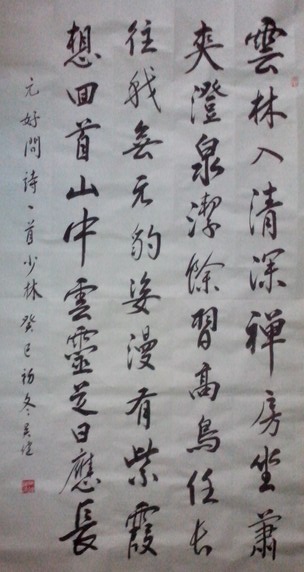 雲林入清深禪房坐蕭
爽澄泉潔餘習高鳥任长
往我無元豹姿漫有紫霞
想回首山中雲靈芝日應長
元好問詩一首少林癸巳初冬